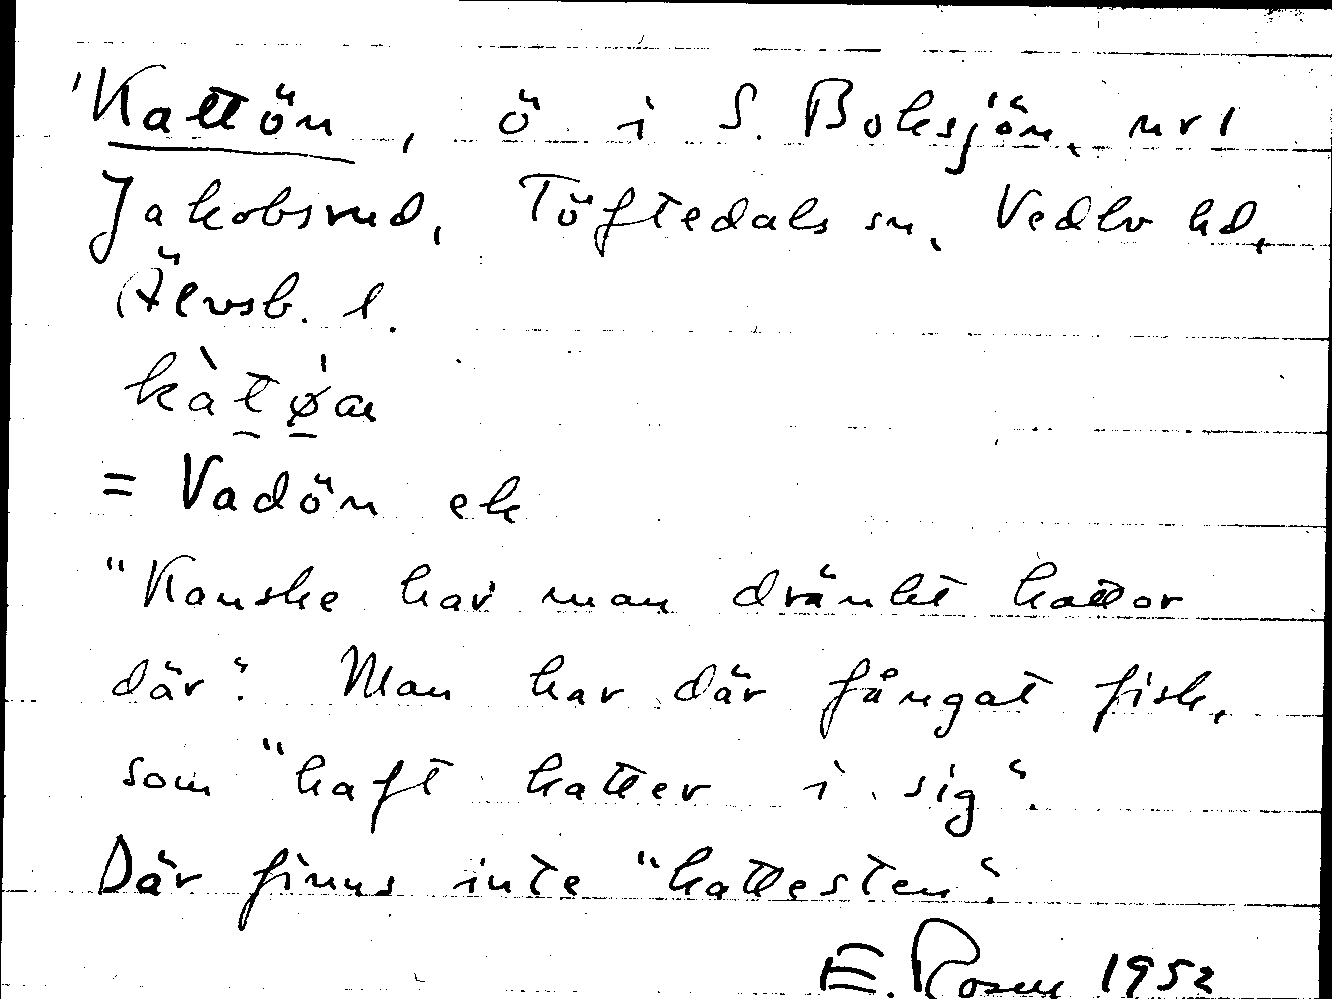 'Kattön, ö i S. Boksjön, nr 1
Jakobsrud, Töftedals sn, Vedbo hd,
Älvsb. l.
kàtø̀n
= Vadön ek
"Kanske har man dränkt kattor
där". Man har där fångat fisk,
som "haft katter i sig".
Där finns inte "kattesten".
E. Rosen 1952